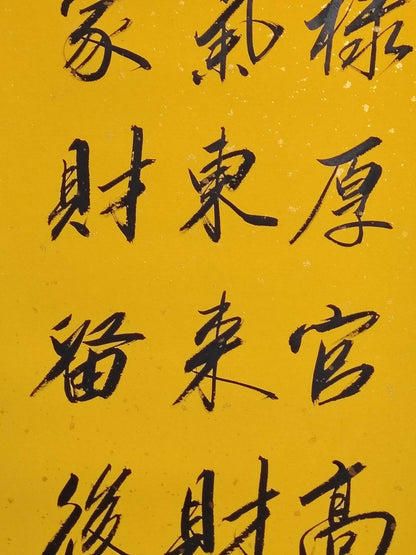 禄厚官高
氣東来財
家財留後